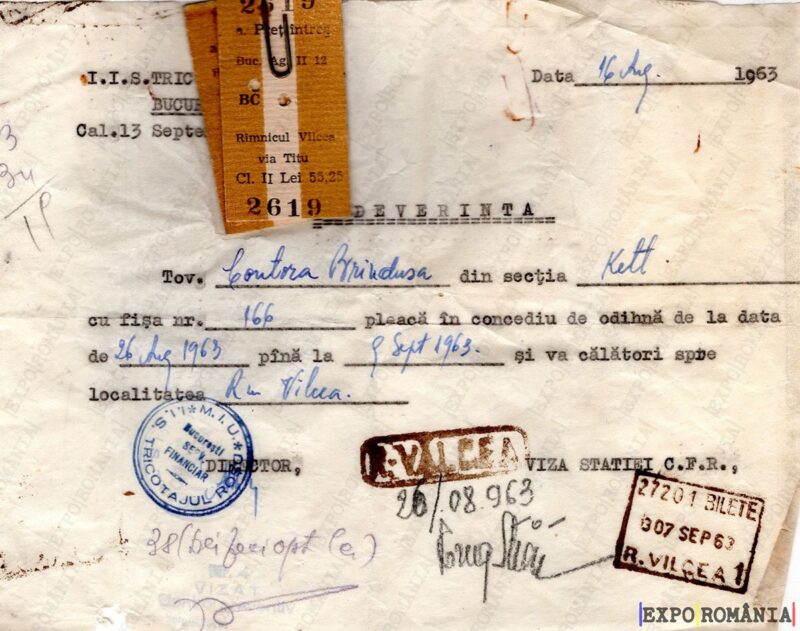 2619
a. Preț întreg
Buc. Ag II 12
BC
Rîmnicul Vîlcea
via Titu
Cl. II Lei 55,25
2619
I.I.S.TRIC
BUCUR
Cal.13 Septe
Data 16 Aug. 1963
34
ADEVERINTA
Tov. Contora Brîndusa din secția Kett
cu fișa nr. 166 pleacă în concediu de odihnă de la data
de 26 Aug 1963 pînă la 9 Sept 1963. și va călători spre
localitatea Rm Vîlcea.
I.I.S. TRICOTAJUL ROȘU * M.I.U. *
București
SERV.
FINANCIAR
DIRECTOR,
R. VÂLCEA
VIZA STATIEI C.F.R.,
26/.08.963
27201 BILETE
07 SEP 63
R. VILCEA 1
38 (trei zeci opt lei)
VIZAT
EXPO ROMÂNIA